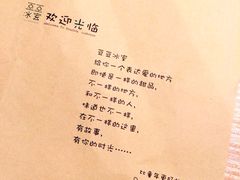 豆豆
冰室 欢迎光临
豆豆冰室
给你一个表达爱的地方
即使是一样的甜品，
不一样的地方，
和不一样的人，
味道也不一样。
在不一样的这里，
有故事，
有你的时光……